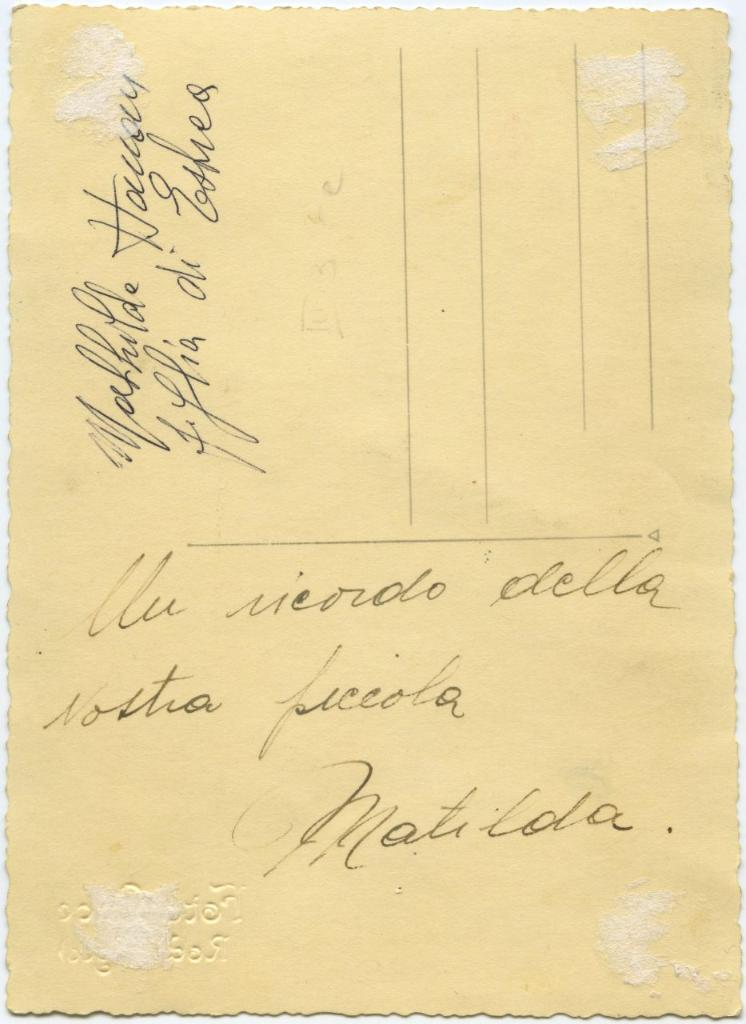 Mathilde Hanan
figlia di Eshea
Un ricordo della
nostra piccola
Matilda.